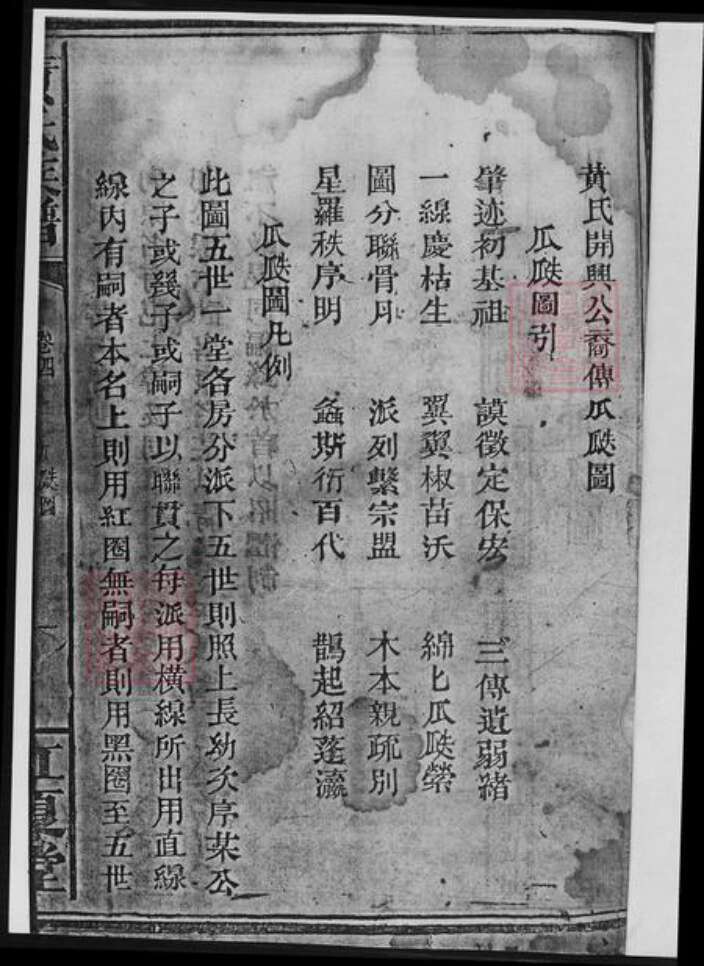 黄氏開興公裔傳瓜瓞圖
瓜瓞圖引
肇迹初基祖 謨徵定保宏 三傳遺弱緒
一線慶枯生 翼翼椒苗沃 綿匕瓜瓞縈
圖分聯骨月 派列繫宗盟 木本親疏別
星羅秩序明 螽斯衍百代 鵲起紹蓬瀛
瓜瓞圖凡例
此圖五世一堂各房分派下五世則照上長幼次序某公
之子或幾子或嗣子以聯貫之每派用橫線所出用直線
線內有嗣者本名上則用紅圈無嗣者則用黑圈至五世
氏族譜
卷四
瓜瓞圖
江夏堂